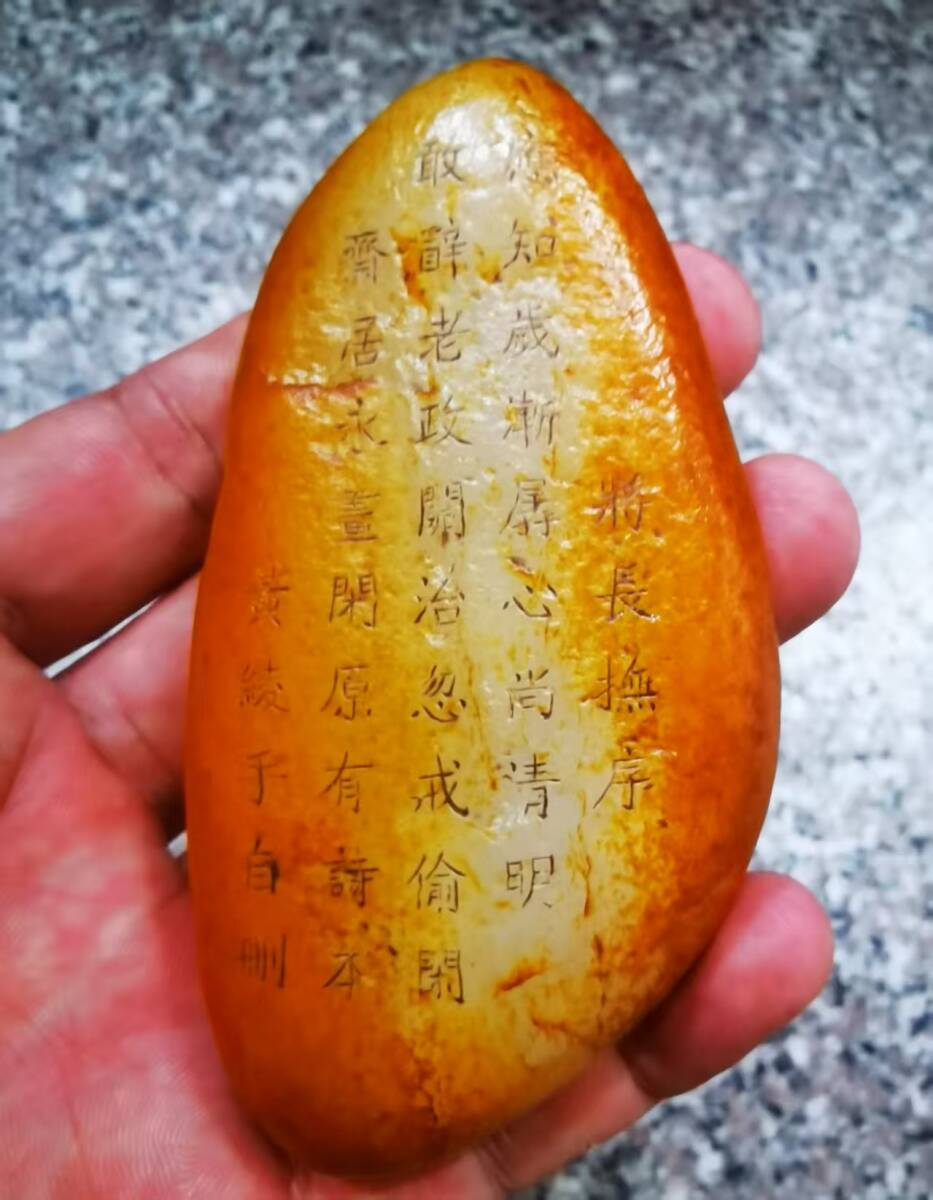 將長撫序
應知歲漸孱心尚清明
敢辭老政關治忽戒偷閑
齋居永晝閑原有詩本
黃綾手自刪